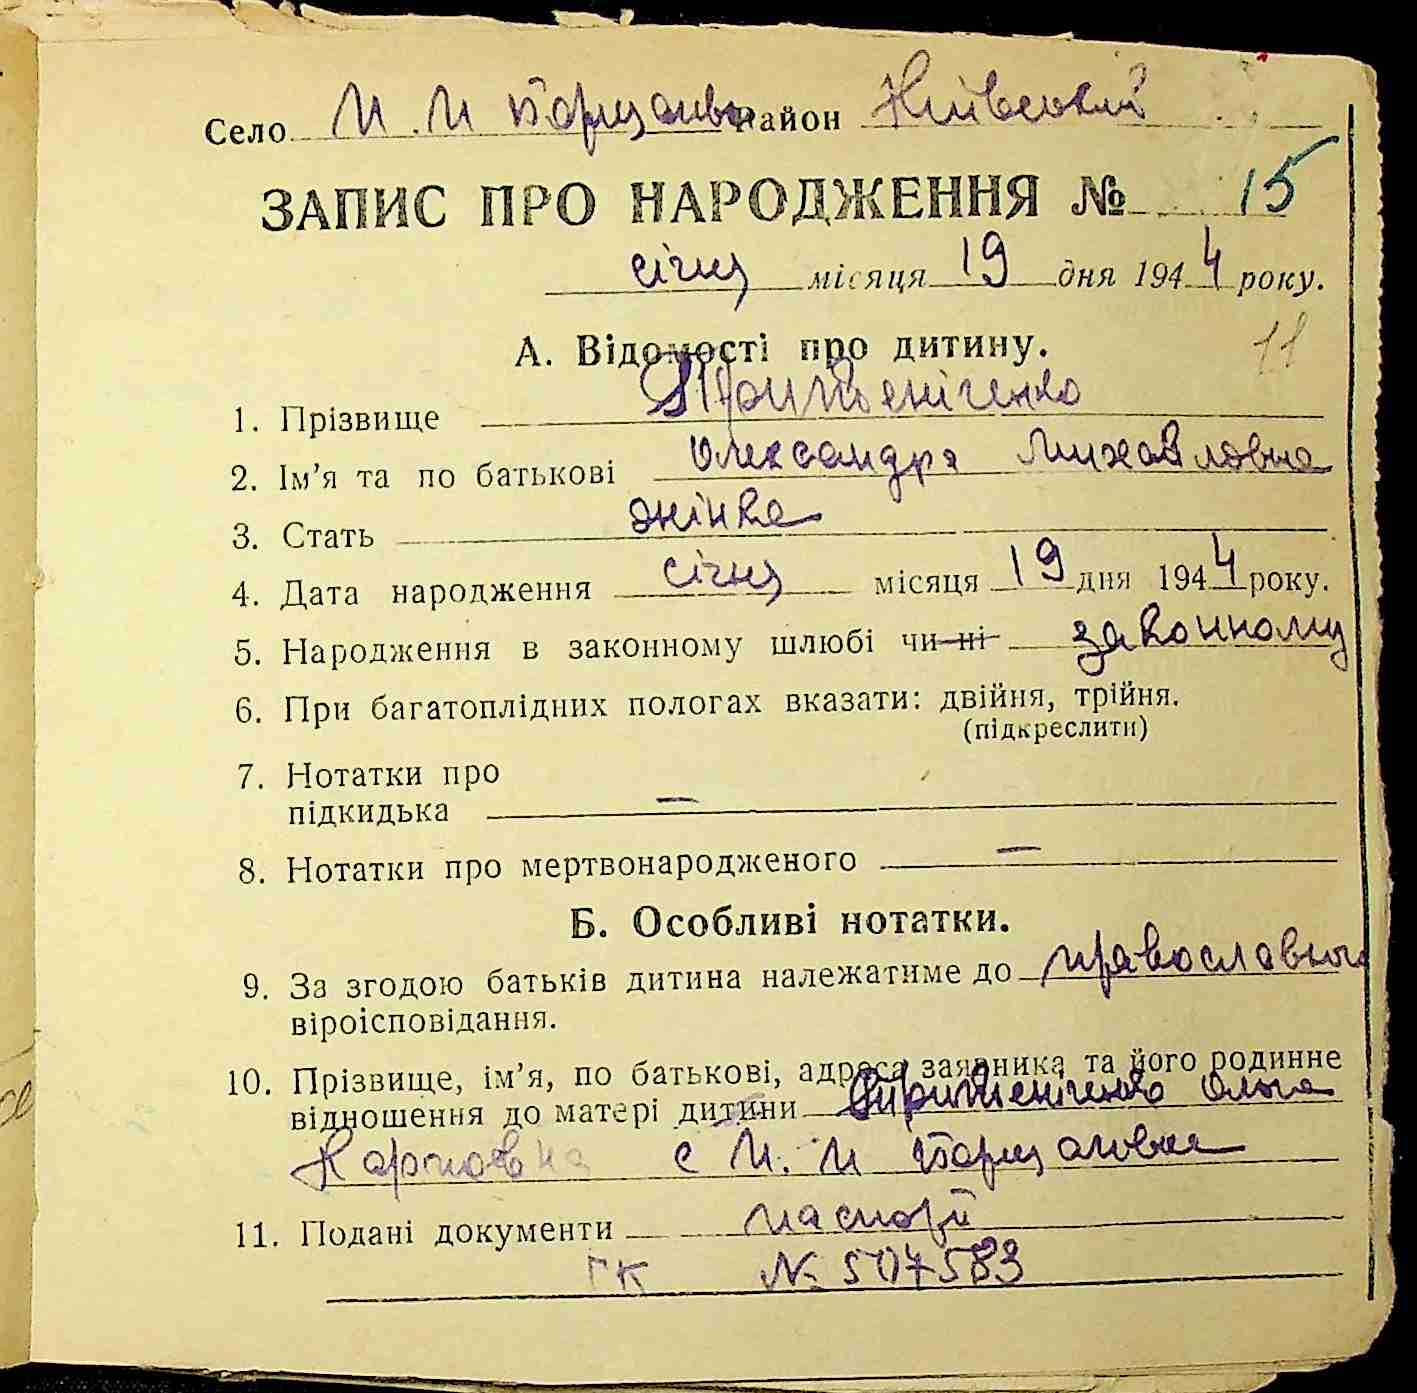 Село П. П. Борщагівка район Київський
ЗАПИС ПРО НАРОДЖЕННЯ № 15
січня місяця 19 дня 1944 року.
А. Відомості про дитину. 11
1. Прізвище
2. Ім'я та по батькові Олександра Михайловна
3. Стать жінка
4. Дата народження січня місяця 19 дня 1944 року.
5. Народження в законному шлюбі чи ні законному
6. При багатоплідних пологах вказати: двійня, трійня.
(підкреслити)
7. Нотатки про
підкидька —
8. Нотатки про мертвонародженого —
Б. Особливі нотатки.
9. За згодою батьків дитина належатиме до православного
віроісповідання.
10. Прізвище, ім'я, по батькові, адреса заявника та його родинне
відношення до матері дитини Ольга
Карповна с П. П
11. Подані документи паспорт
ГК № 507583